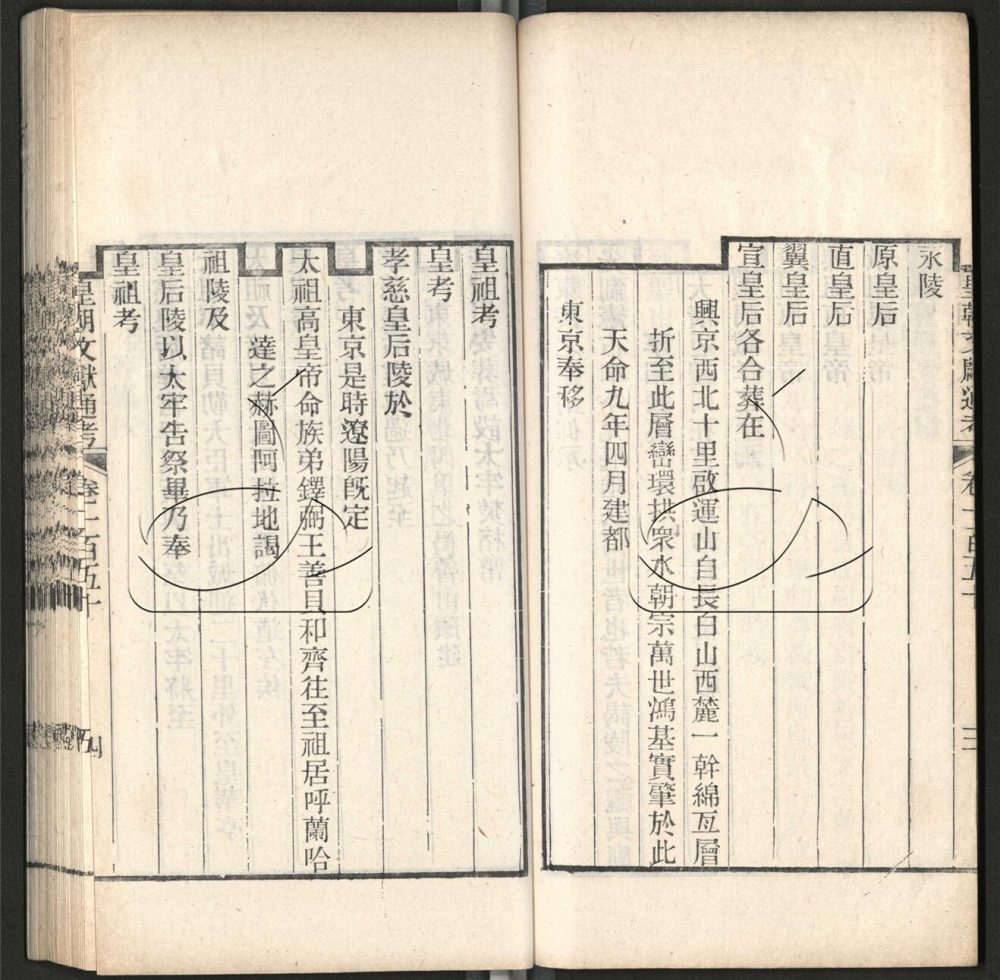 永陵
原皇后
直皇后
翼皇后
宣皇后各合葬在
興京西北十里啟運山自長白山西麓一幹綿亙層
折至此層巒環拱衆水朝宗萬世鴻基實肇於此
天命九年四月建都
東京奉移
皇祖考
皇考
孝慈皇后陵於
東京是時遼陽旣定
太祖高皇帝命族弟鐸弼王善貝和齊往至祖居呼蘭哈
達之赫圖阿拉地謁
祖陵及
皇后陵以太牢告祭畢乃奉
皇祖考
皇朝文獻通考 卷一百五十